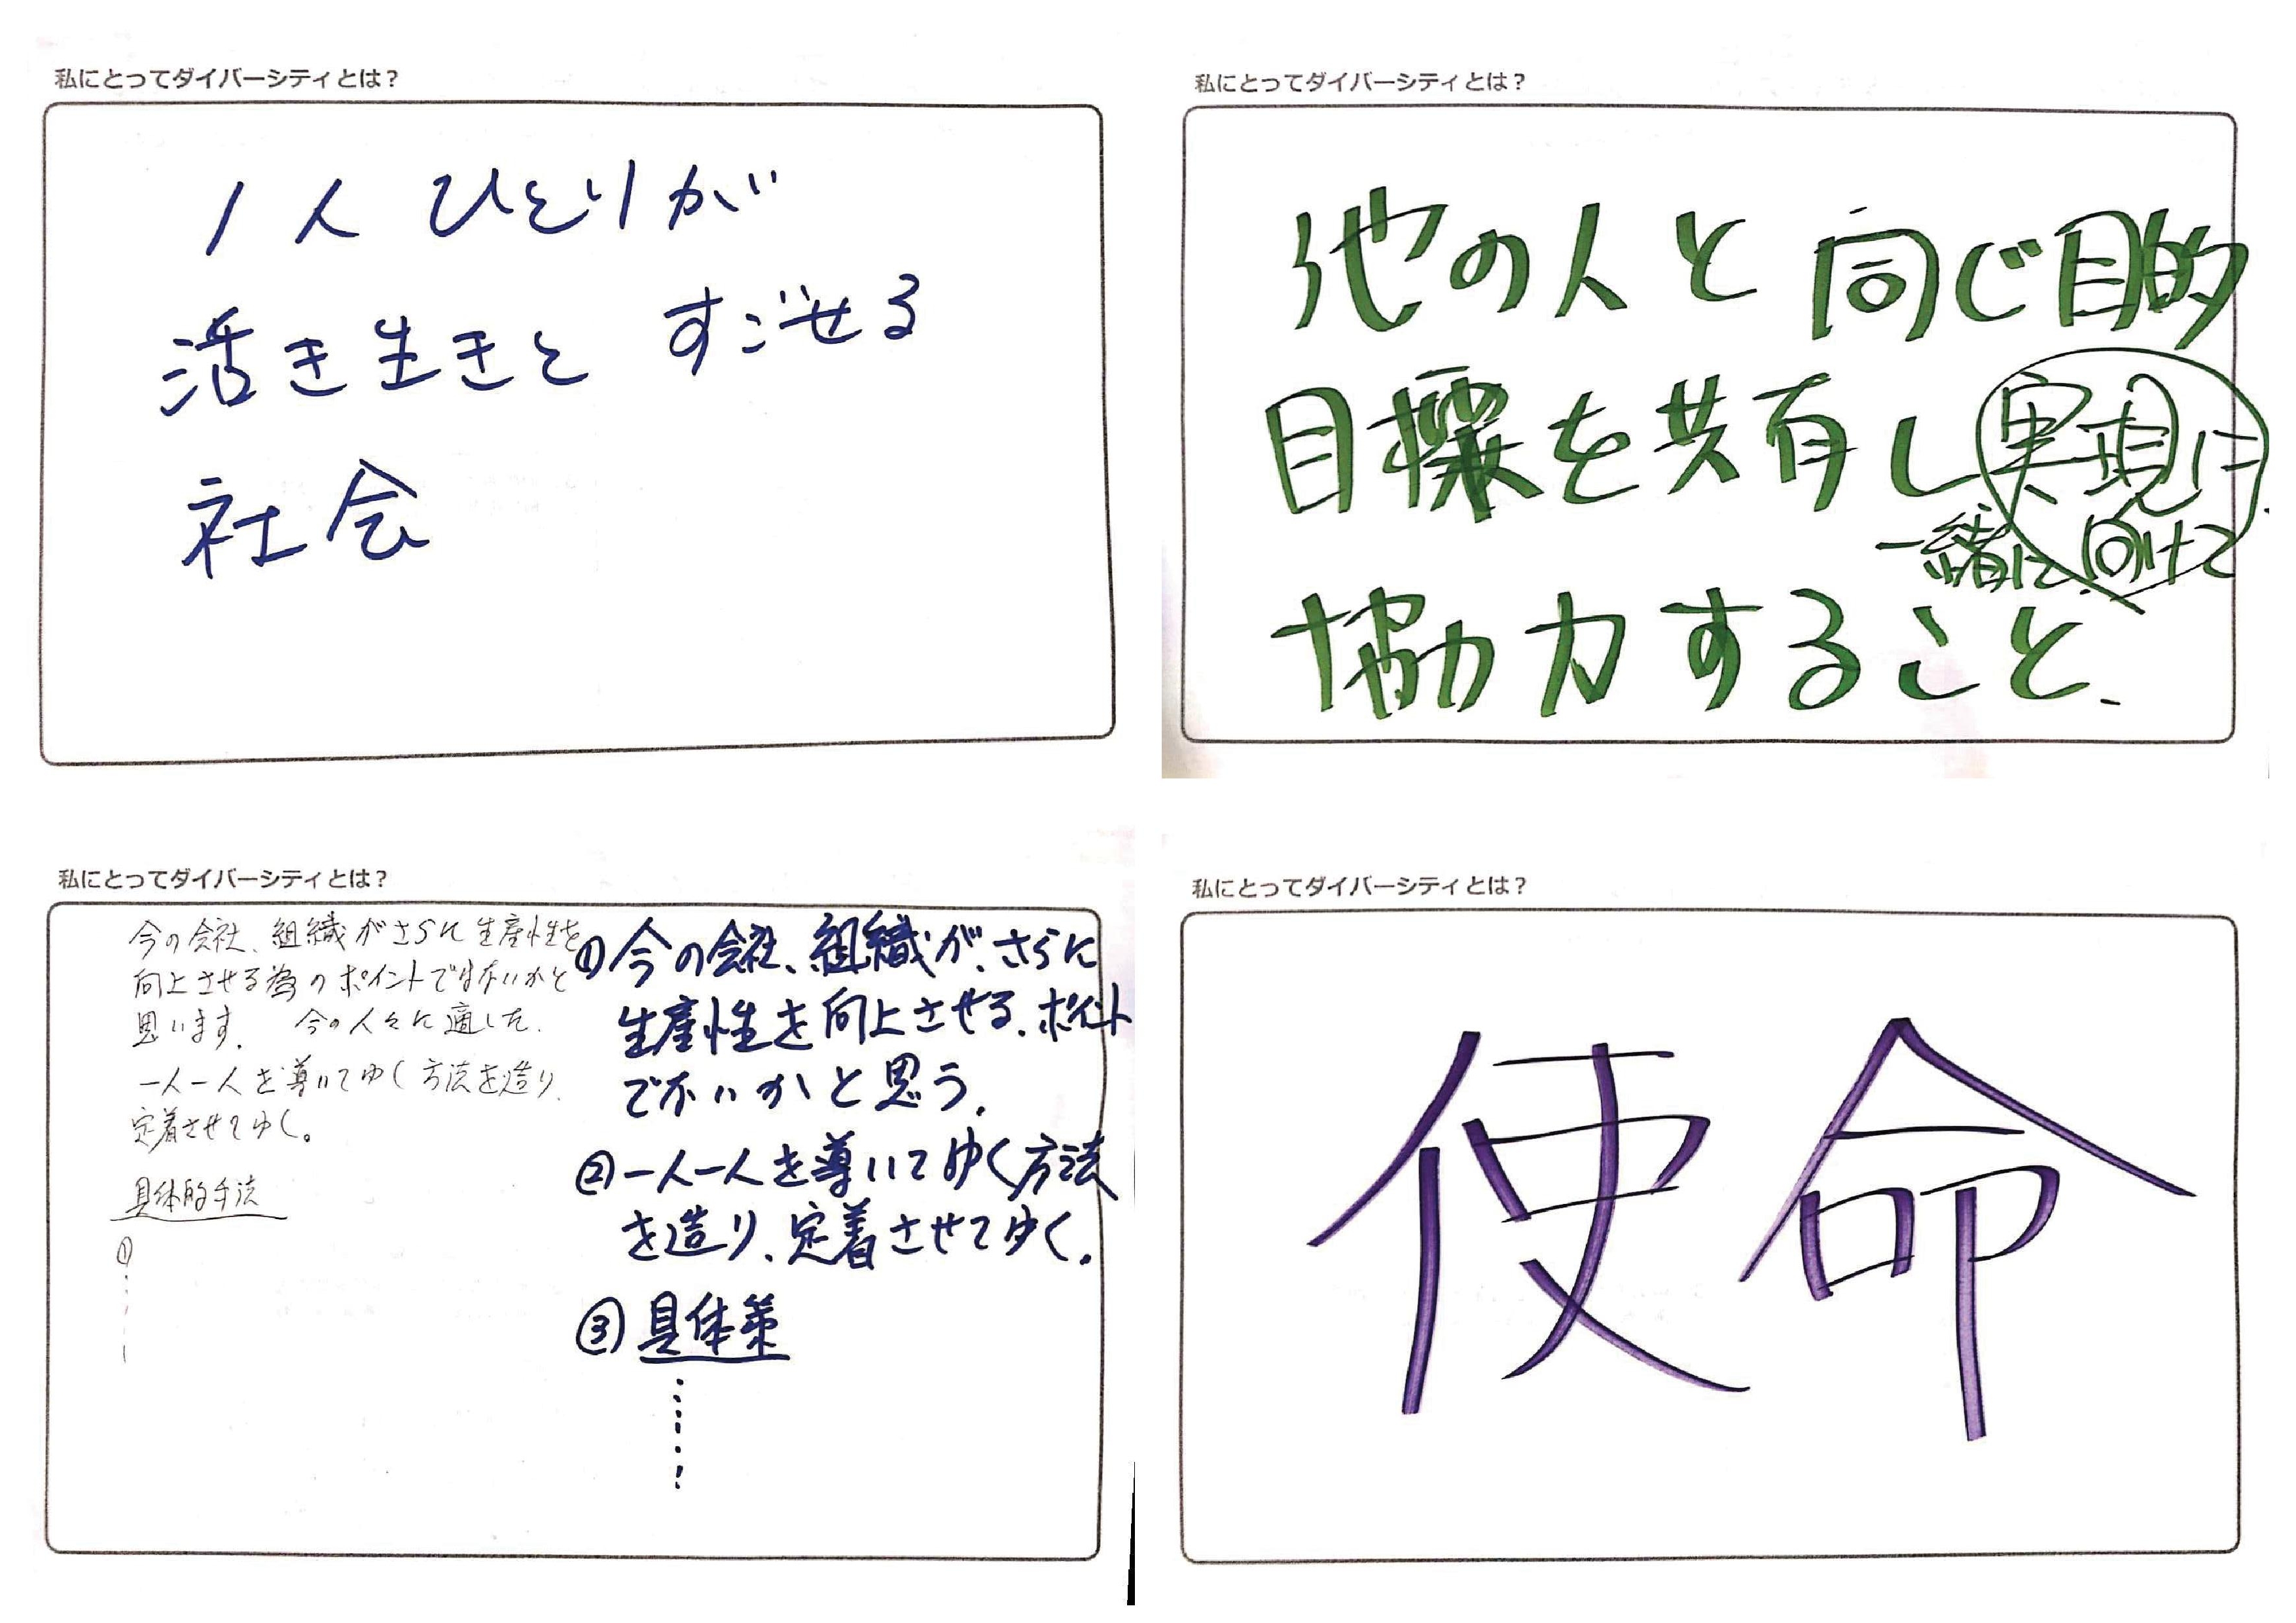 私にとってダイバーシティとは？
1人ひとりが
活き生きとすごせる
社会
私にとってダイバーシティとは？
他の人と同じ目的
目標を共有し実現に
一緒に向けて
協力すること、
私にとってダイバーシティとは？
今の会社、組織がさらに生産性を
向上させる為のポイントではないかと
思います。 今の人々に適した、
一人一人を導いてゆく方法を造り、
定着させてゆく。
具体的手法
①
①今の会社、組織が、さらに
生産性を向上させる、ポイント
でないかと思う。
②一人一人を導いてゆく方法
を造り、定着させてゆく。
③具体策
私にとってダイバーシティとは？
使命